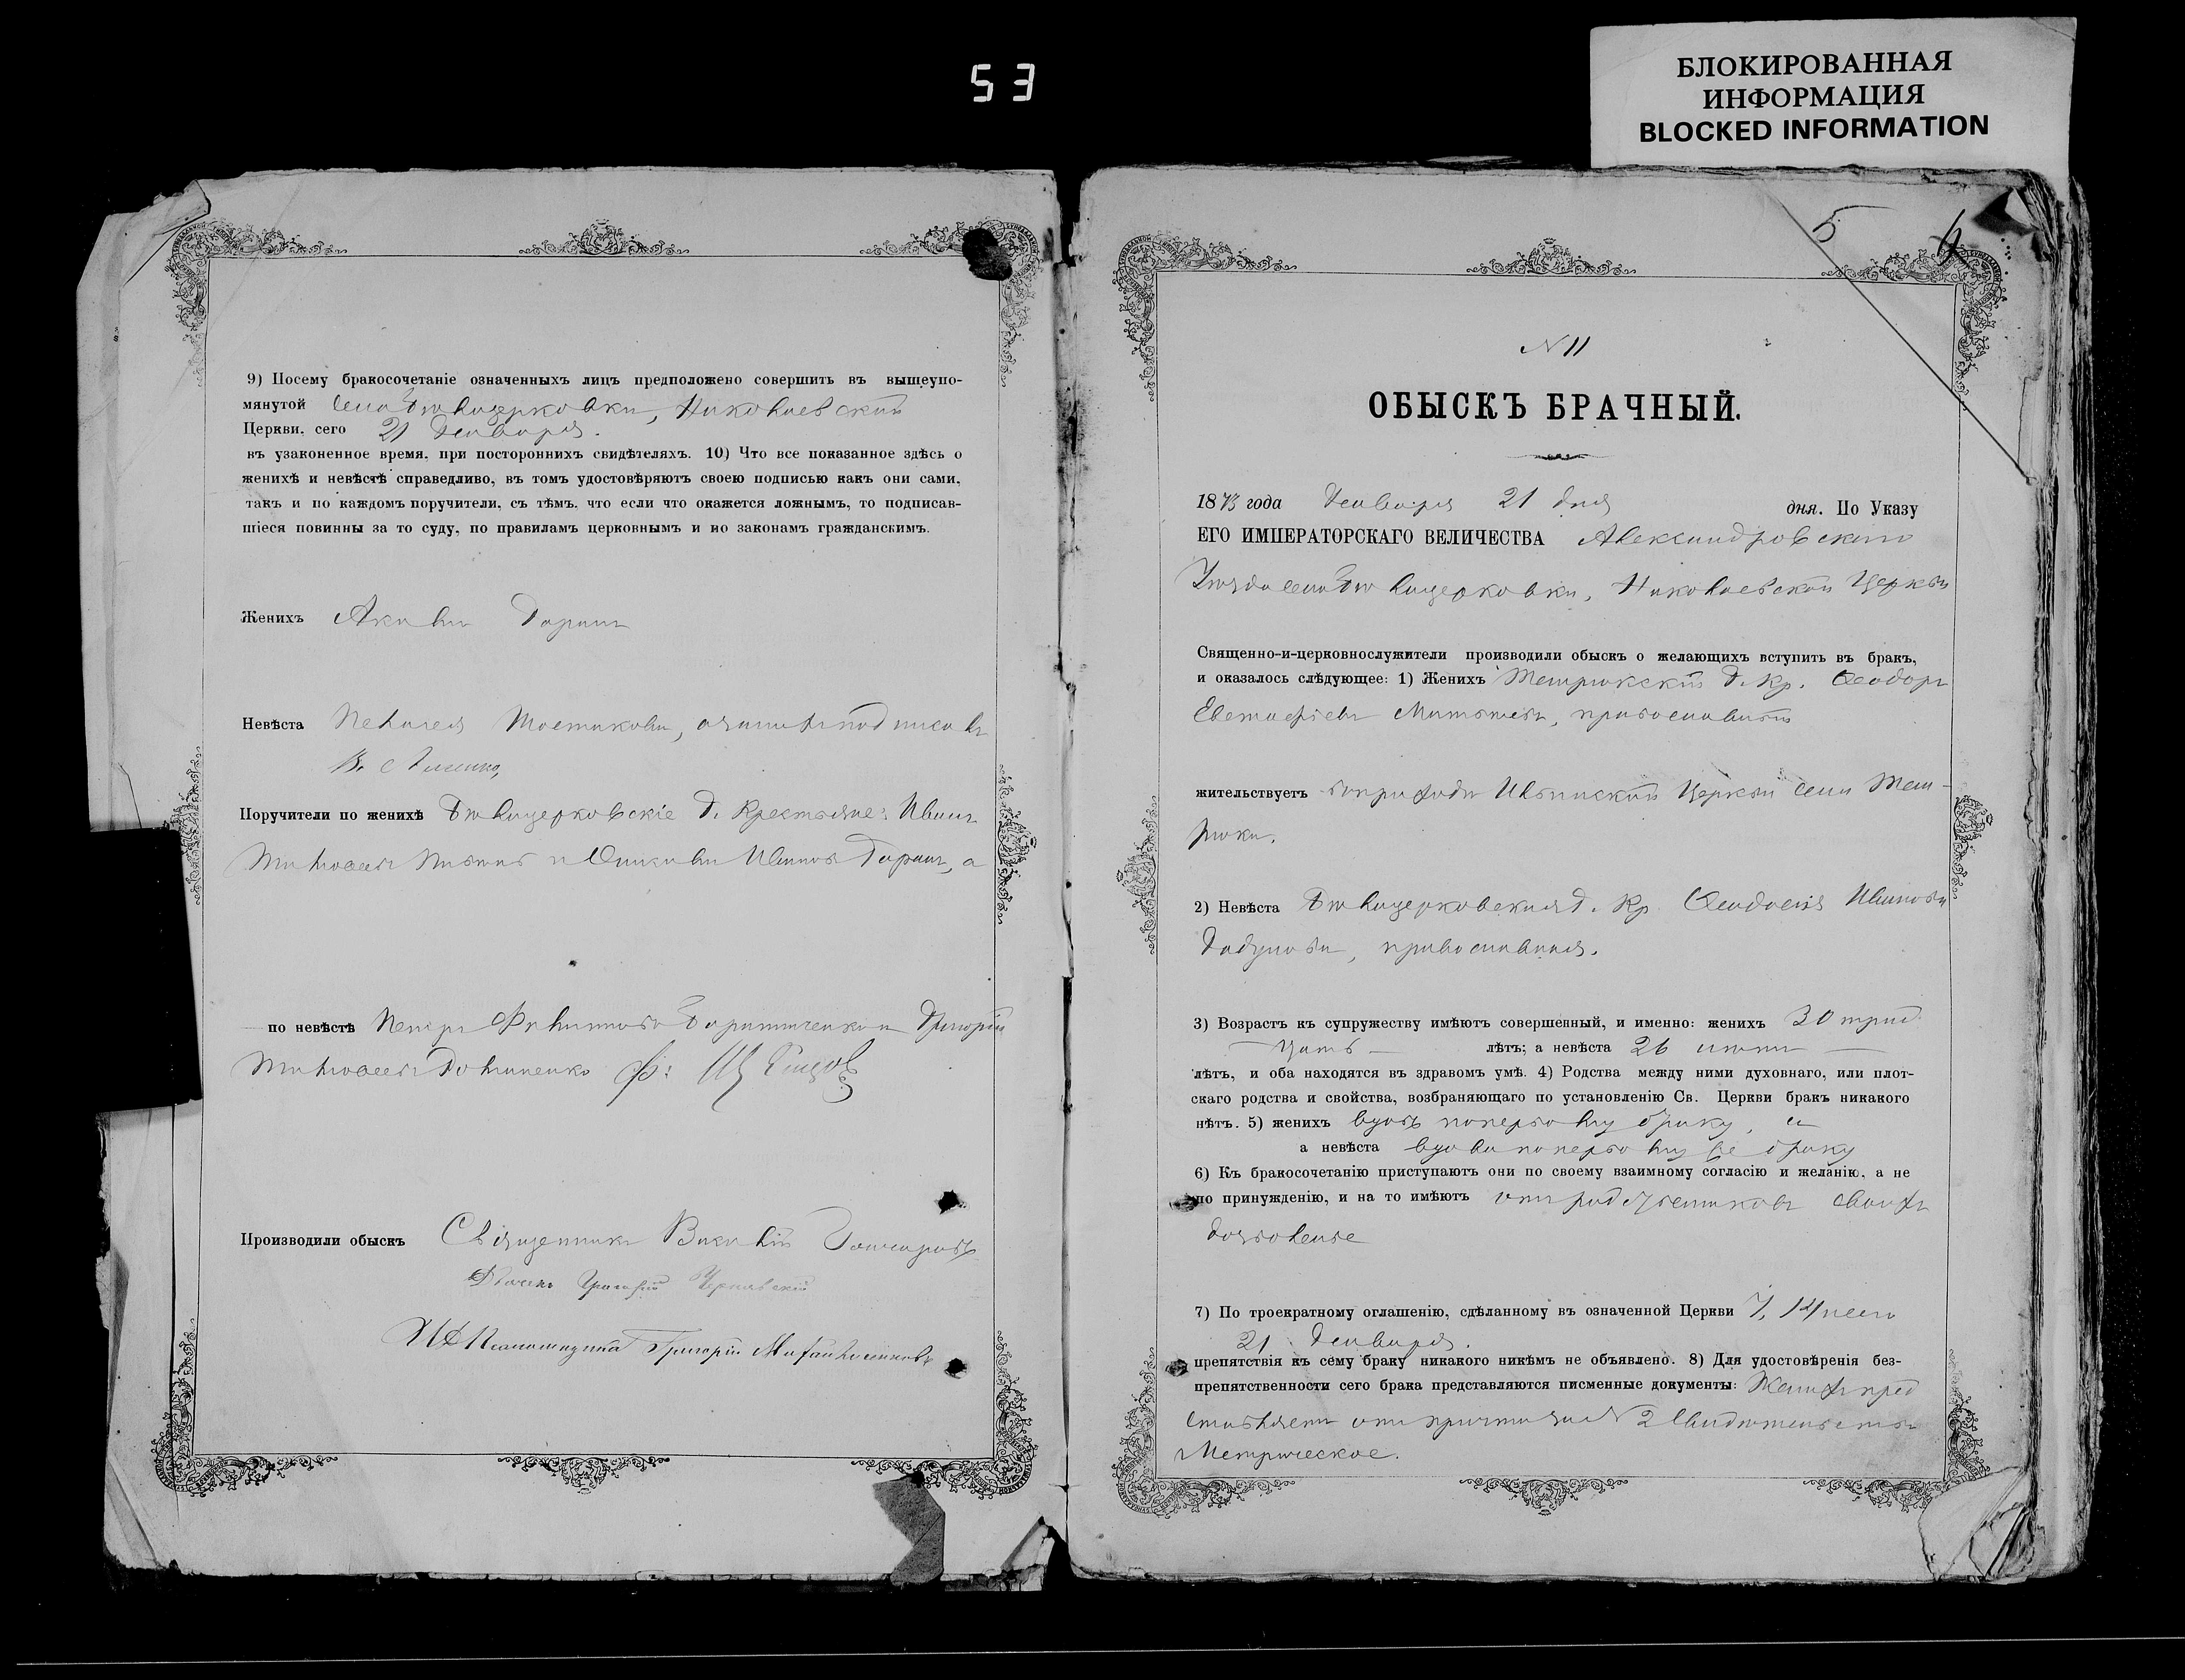 53
БЛОКИРОВАННАЯ
ИНФОРМАЦИЯ
BLOCKED INFORMATION
9) Посему бракосочетаніе означенныхъ лицъ предположено совершить въ вышеупо-
мянутой села Бѣлоцерковки, Николаевской
Церкви. сего 21 Генваря.
въ узаконенное время. при постороннихъ свидѣтеляхъ. 10) Что все показанное здѣсь о
женихѣ и невѣстѣ справедливо, въ томъ удостовѣряютъ своею подписью какъ они сами,
такъ и по каждомъ поручители, съ тѣмъ. что если что окажется ложнымъ, то подписав-
шіеся повинны за то суду, по правиламъ церковнымъ и по законамъ гражданскимъ.
Женихъ
Невѣста Пелагея
Поручители по женихѣ Бѣлоцерковскіе д. Крестьяне: Иванъ
по невѣстѣ Петръ Филиповъ Григорій
Производили обыскъ Священникъ
Дьячекъ Григорій Чернявскій
Григорій
5
N 11
ОБЫСКЪ БРАЧНЫЙ.
1873 года Генваря 21 дня дня. По Указу
ЕГО ИМПЕРАТОРСКАГО ВЕЛИЧЕСТВА Александровскаго
Уѣзда села Бѣлоцерковки, Николаевской Церкви
Священно-и-церковнослужители производили обыскъ о желающихъ вступить въ бракъ,
и оказалось слѣдующее: 1) Женихъ Темрюкскій д. Кр. Ѳеодоръ
Евстафіевъ православный
жительствуетъ въ приходѣ Церкви села Тем-
рюка.
2) Невѣста Бѣлоцерковская д. Кр. Ѳеодосія Иванова
православная.
3) Возрастъ къ супружеству имѣютъ совершенный, и именно: женихъ 30 трид
цать лѣтъ; а невѣста 26
лѣтъ, и оба находятся въ здравомъ умѣ. 4) Родства между ними духовнаго, или плот-
скаго родства и свойства, возбраняющаго по установленію Св. Церкви бракъ никакого
нѣтъ. 5) женихъ вдовъ по первому браку, а
а невѣста вдова по первому браку
6) Къ бракосочетанію приступаютъ они по своему взаимному согласію и желанію. а не
по принужденію, и на то имѣютъ отъ родственниковъ своихъ
дозволенье
7) По троекратному оглашенію, сдѣланному въ означенной Церкви 7, 14 и сего
21 Генваря.
препятствія къ сему браку никакого никѣмъ не объявлено. 8) Для удостовѣренія без-
препятственности сего брака представляются писменные документы: Женихъ пред
ставляетъ отъ причта за № 2 Свидѣтельство
Метрическое.